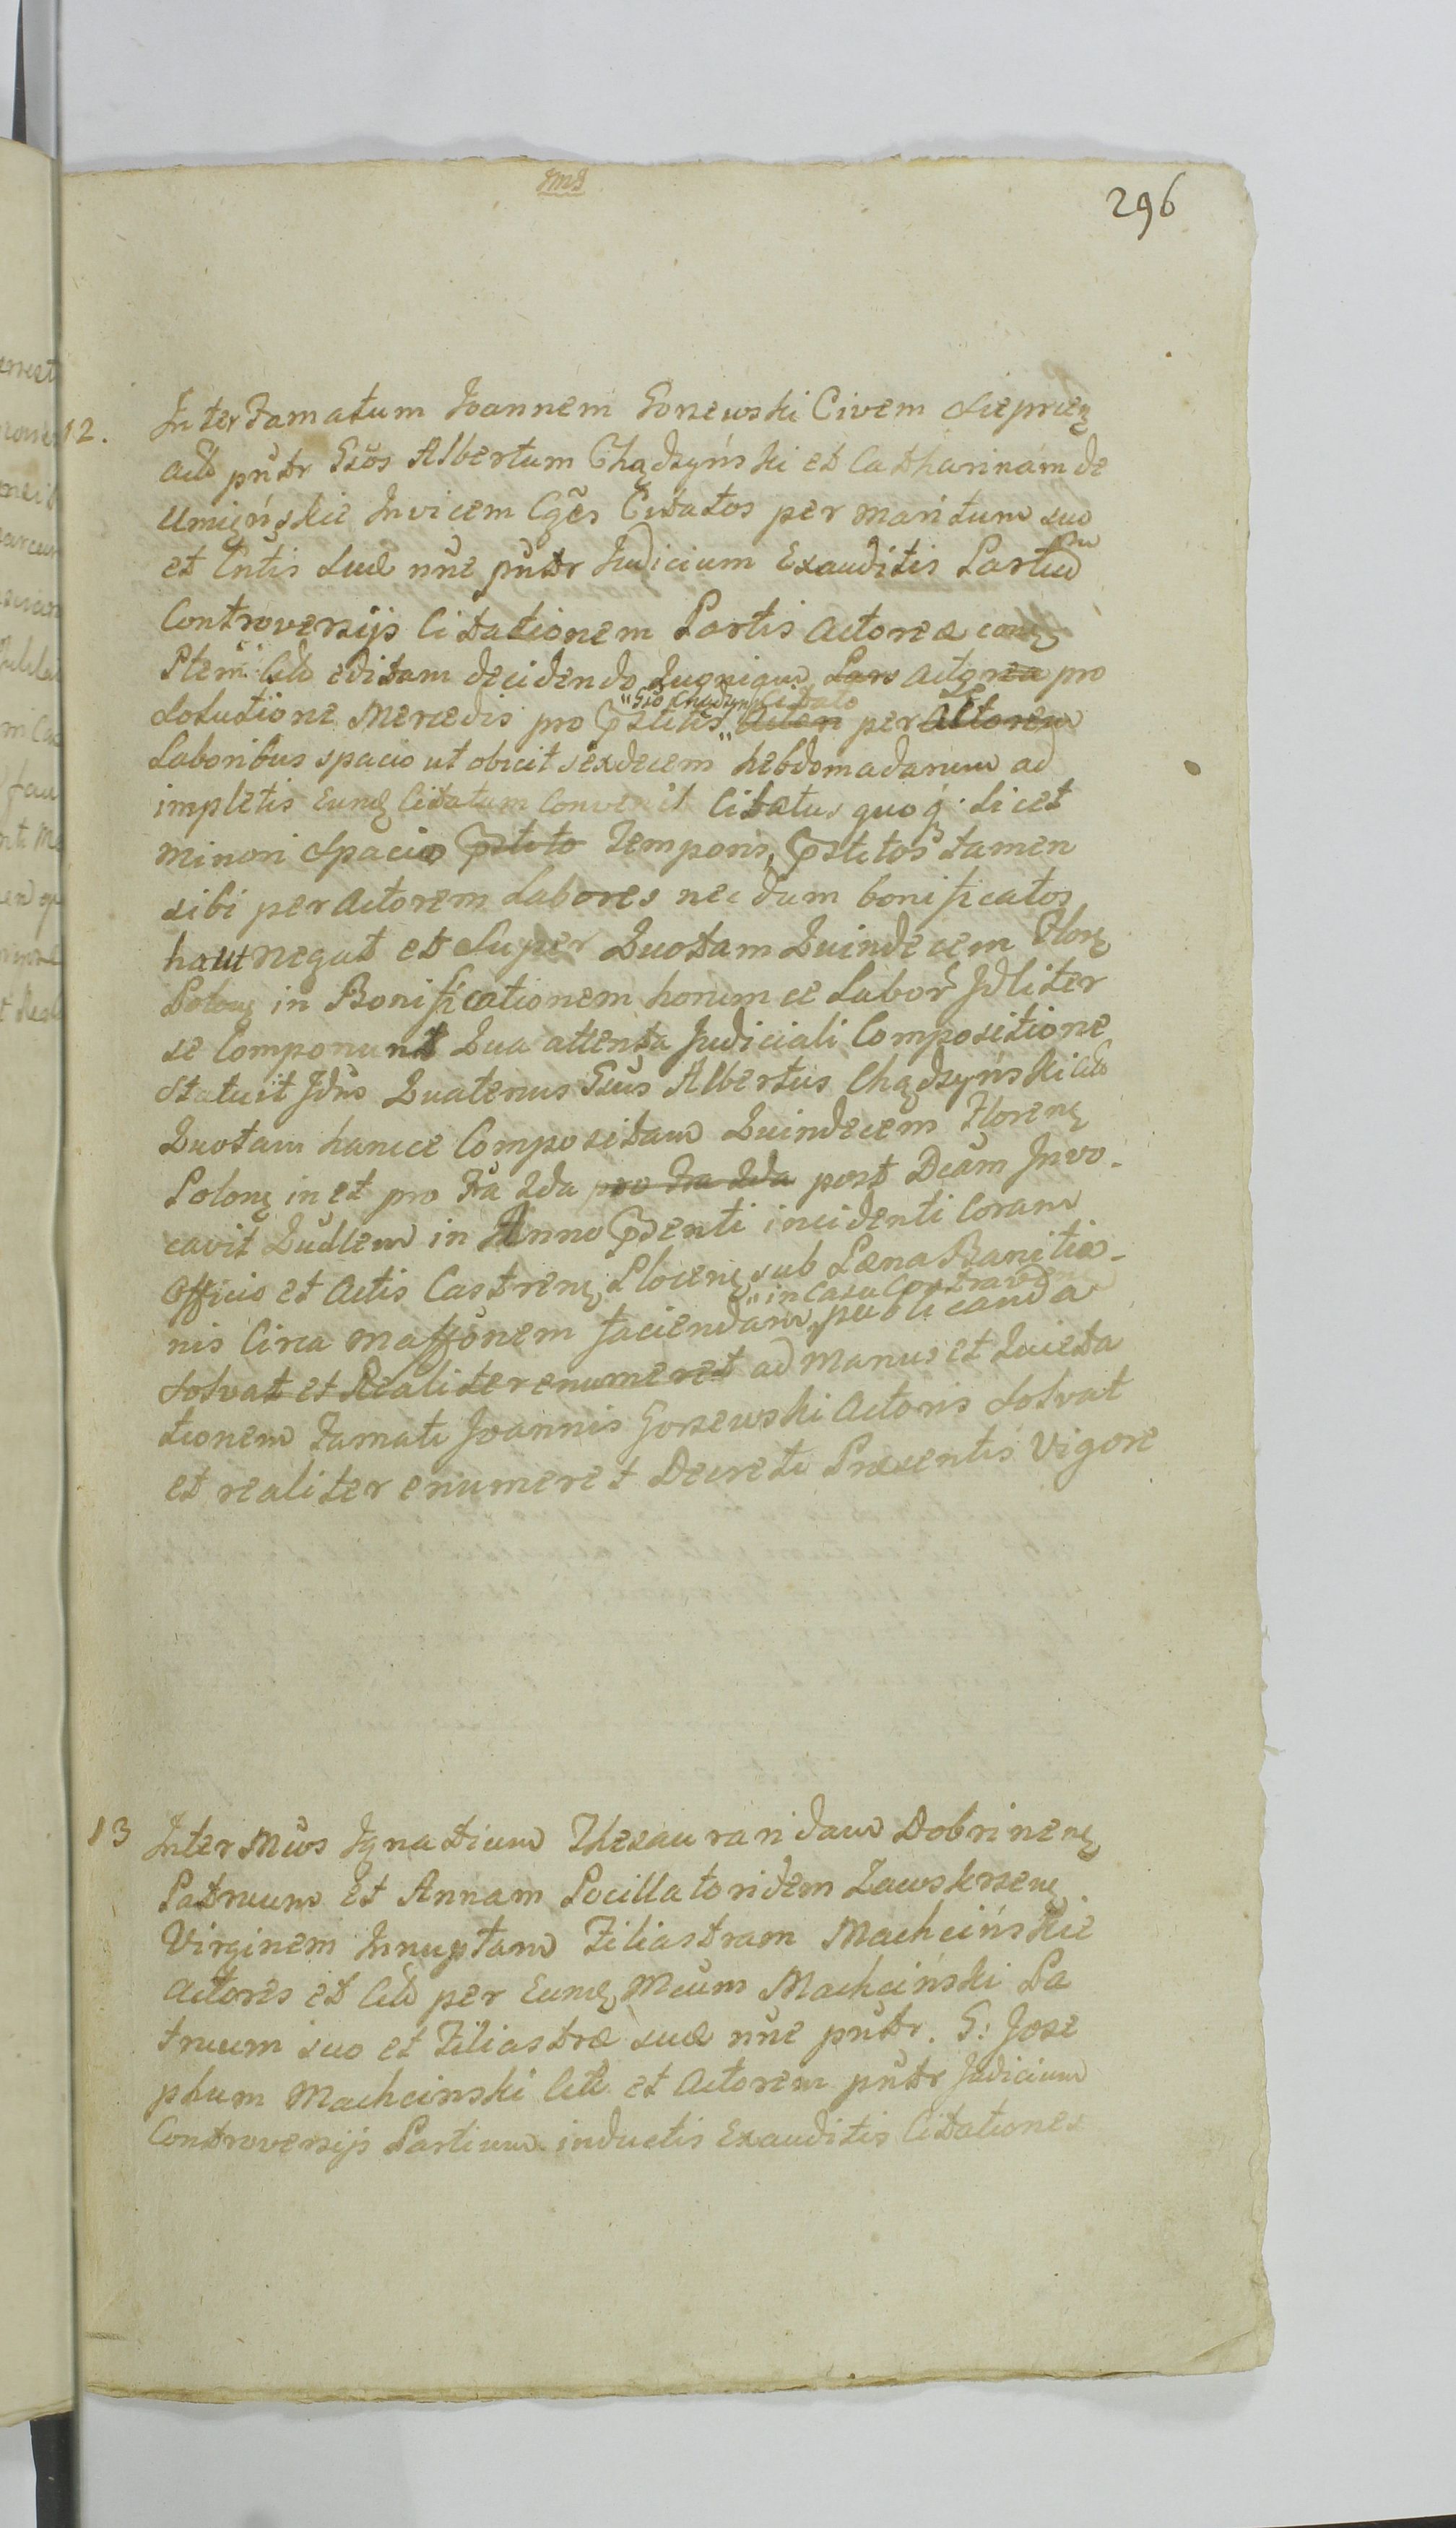 296
12. Inter Famatum Joannem Gorzewski Civem Sieprcen
act pntr Gsos Albertum Chądzyński et Catharinam de
Umięńskie Invicem Cges Citatos per maritum suo
et Cntis suæ nne pntr Judicium Exauditis Partium
Controversijs Citationem Partis Actoreæ conq
Ptem Citt editam decidendo Quoniam Pars Actorea pro
Solutione Mercedis pro pstitis "Gso Chądzyn Citato Acten per Actorem
Laboribus spacio ut obicit sexdecem hebdomadarum ad
impletis Eunq Citatum Convenit Citatus quoq: licet
minori Spacio pstito Temporis, pstitos tamen
sibi per Actorem Labores nec dum bonificatos
haut negat et Super Quotam Quindecem Flor
Polon in Bonificationem horum ce Labor Jdliter
se Componunt Qua attenta Judiciali Compositione
Statuit Jdns Quatenus Gsus Albertus Chądzyński citt
Quotam hancce Compositam Quindecem Floren
Polon in et pro Fra 2da pro Fra 2da post Dcam Invo-
cavit Qudlem in Anno psenti incidenti Coram
Officio et Actis Castren Plocen sub Pæna Banitio-
nis Circa maffonem faciendam "in Casu Contraven publicanda
solvat et Realiter enumeret ad manus et Quieta
tionem Famati Joannis Gorzewski Actoris Solvat
et realiter enumeret Decreti Præsentis Vigore
13 Inter Mcos Ignatium Thesauraridam Dobrinen
Patruum et Annam Pocillatoridem Zawskrzen
Virginem Innuptam Filiastram Machcińskie
Actores et Citt per Eunq Mcum Machciński Pa
truum suo et Filiastræ suæ nne pntr. G: Jose
phum Machcinski Citt et Actorem pntr Judicium
Controversijs Partium inductis Exauditis Citationes